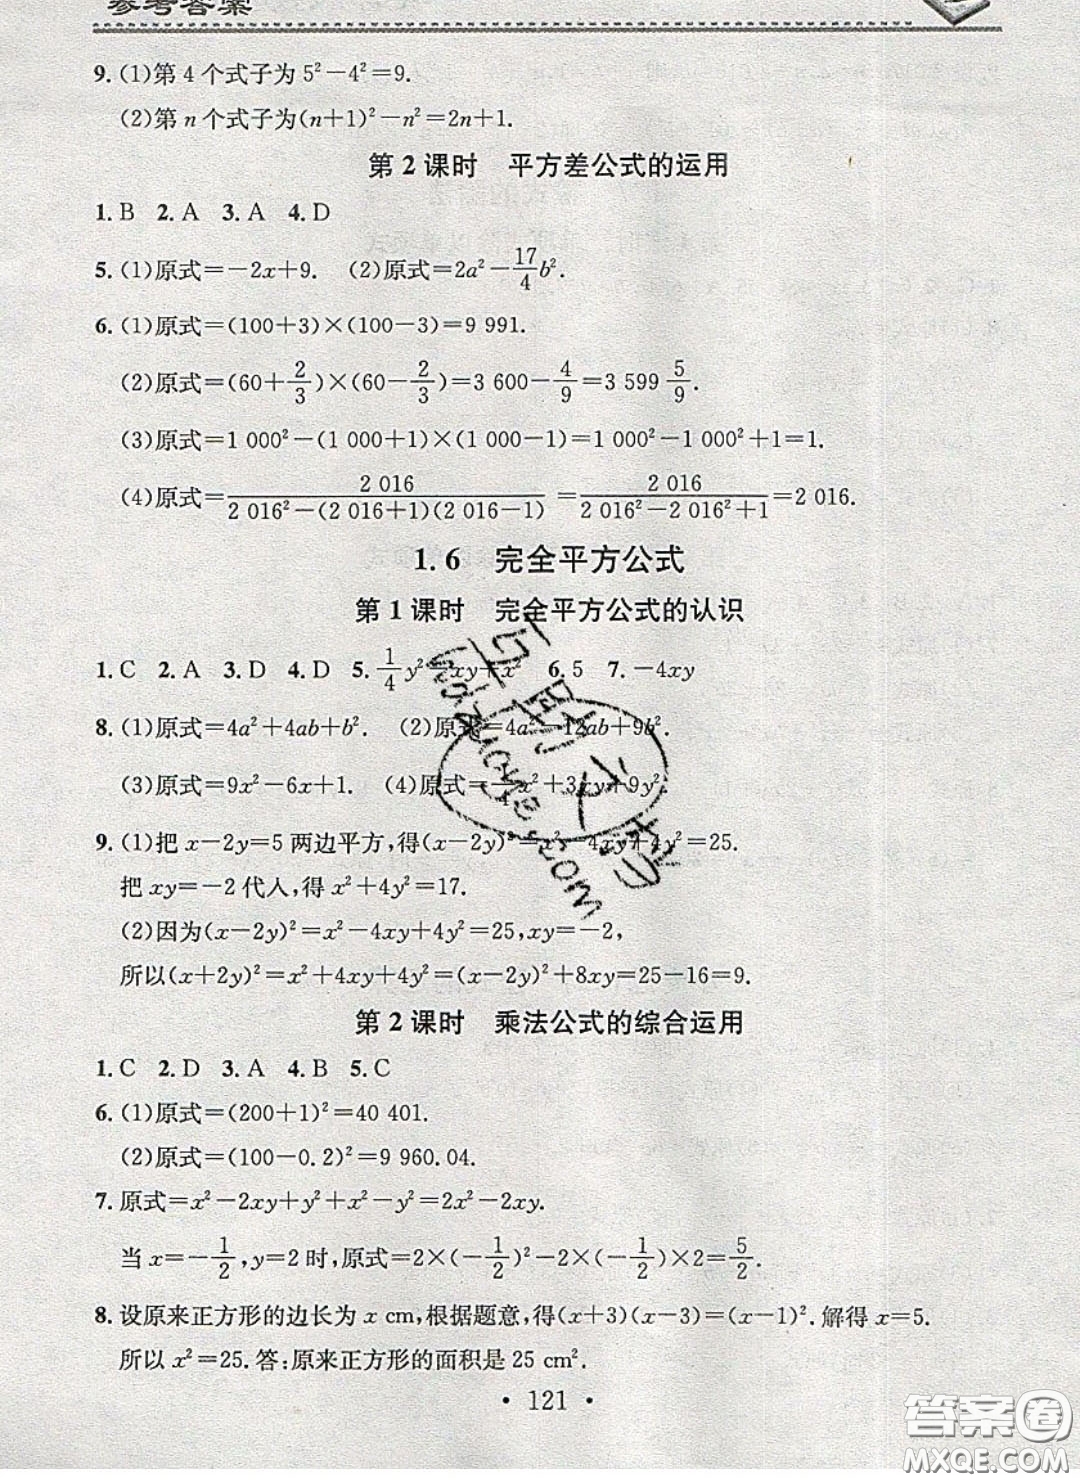 参考答案
9. (1)第 4 个式子为 5²－4²＝9.
(2)第 n 个式子为(n＋1)²－n²＝2n＋1.
第 2 课时　平方差公式的运用
1. B　2. A　3. A　4. D
5. (1)原式＝－2x＋9.　(2)原式＝2a²－17/4 b².
6. (1)原式＝(100＋3)×(100－3)＝9 991.
(2)原式＝(60＋2/3)×(60－2/3)＝3 600－4/9＝3 599 5/9.
(3)原式＝1 000²－(1 000＋1)×(1 000－1)＝1 000²－1 000²＋1＝1.
(4)原式＝2 016/(2 016²－(2 016＋1)(2 016－1))＝2 016/(2 016²－2 016²＋1)＝2 016.
1. 6　完全平方公式
第 1 课时　完全平方公式的认识
1. C　2. A　3. D　4. D　5. 1/4 y²－xy＋x²　6. 5　7. －4xy
8. (1)原式＝4a²＋4ab＋b².　(2)原式＝4a²－12ab＋9b².
(3)原式＝9x²－6x＋1.　(4)原式＝1/4 x²＋3xy＋9y².
9. (1)把 x－2y＝5 两边平方，得(x－2y)²＝x²－4xy＋4y²＝25.
把 xy＝－2 代人，得 x²＋4y²＝17.
(2)因为(x－2y)²＝x²－4xy＋4y²＝25，xy＝－2，
所以(x＋2y)²＝x²＋4xy＋4y²＝(x－2y)²＋8xy＝25－16＝9.
第 2 课时　乘法公式的综合运用
1. C　2. D　3. A　4. B　5. C
6. (1)原式＝(200＋1)²＝40 401.
(2)原式＝(100－0.2)²＝9 960.04.
7. 原式＝x²－2xy＋y²＋x²－y²＝2x²－2xy.
当 x＝－1/2，y＝2 时，原式＝2×(－1/2)²－2×(－1/2)×2＝5/2.
8. 设原来正方形的边长为 x cm，根据题意，得(x＋3)(x－3)＝(x－1)². 解得 x＝5.
所以 x²＝25. 答：原来正方形的面积是 25 cm².
· 121 ·
答案圈
MXQE.COM